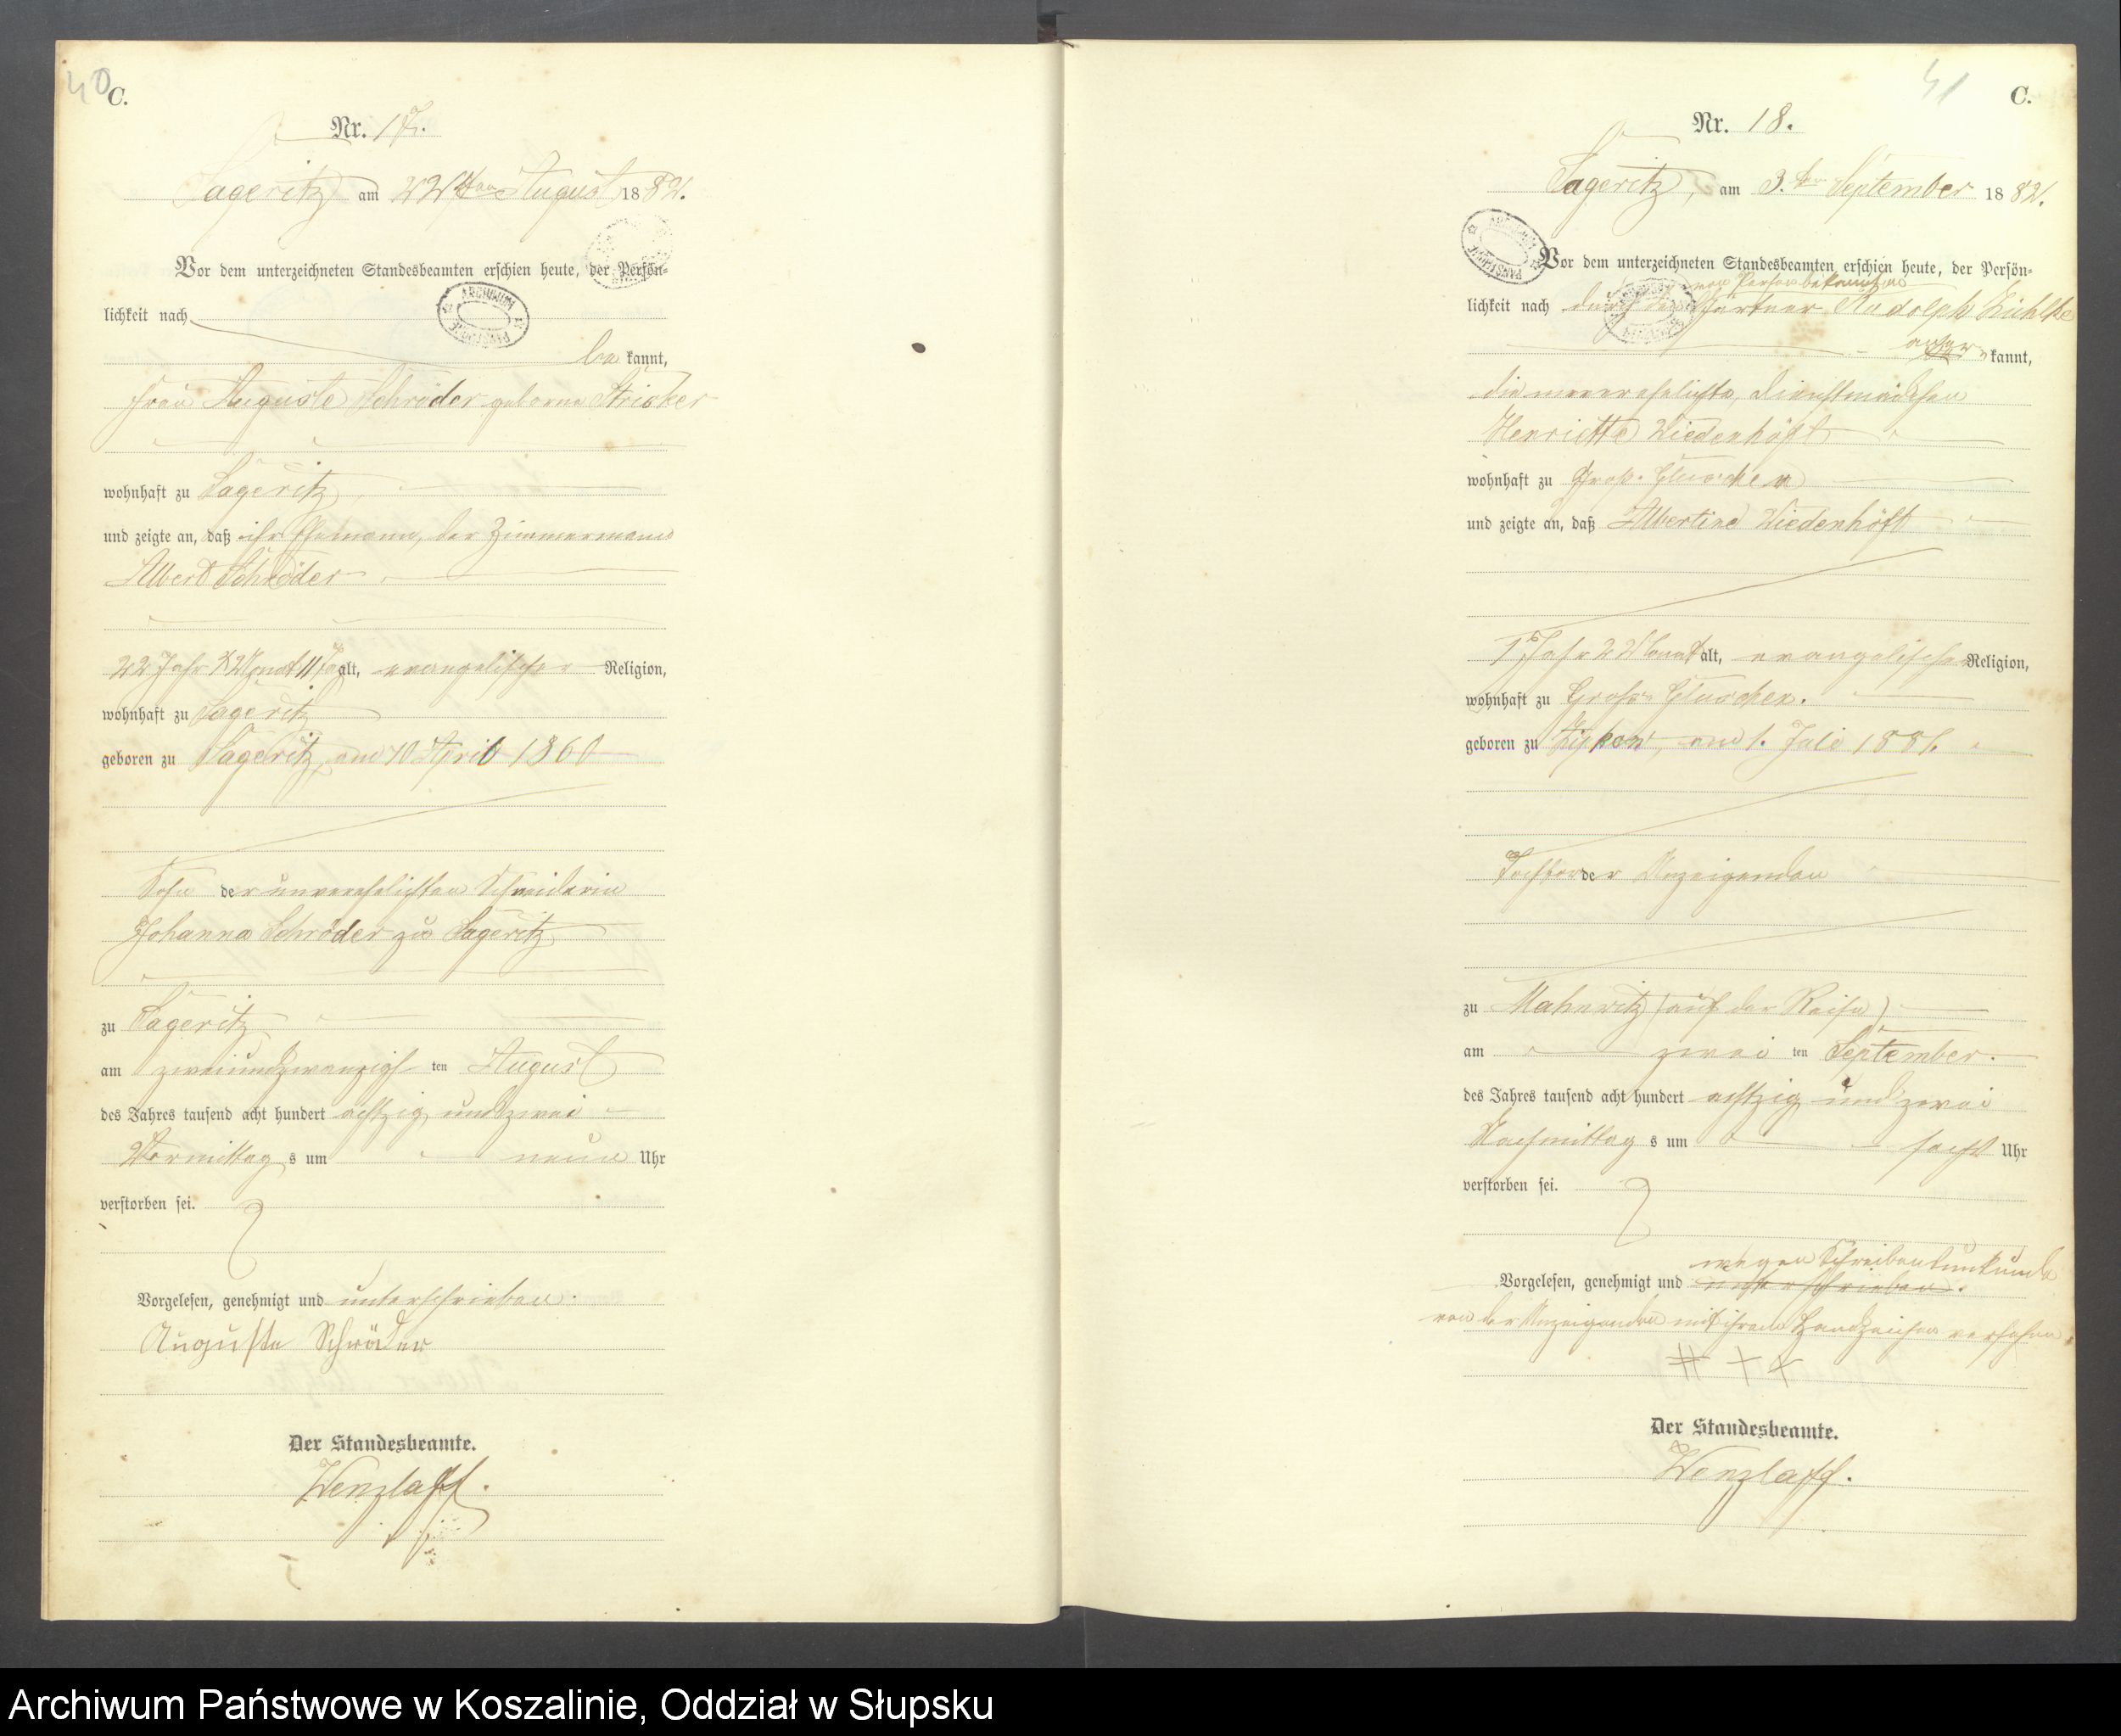 40
C.
Nr. 17.
Sageritz am 22ten August 1882.
Vor dem unterzeichneten Standesbeamten erschien heute, der Persön-
lichkeit nach
be kannt,
Frau Auguste Schröder geborene Stricker
wohnhaft zu Sageritz,
und zeigte an, daß ihr Ehemann, der Zimmermann
Albert Schröder
22 Jahr Monat 11 Tag alt, evangelischer Religion,
wohnhaft zu Sageritz
geboren zu Sageritz, am 10 April 1860
Sohn der unverehelichten Schneiderin
Johanna Schröder zu Sageritz
zu Sageritz
am zweiundzwanzigsten August
des Jahres tausend acht hundert achtzig und zwei
Vormittag s um neun Uhr
verstorben sei.
Vorgelesen, genehmigt und unterschrieben.
Auguste Schröder
Der Standesbeamte.
Wenzlaff.
41
C.
Nr. 18.
Sageritz, am 3.ten September 1882.
Vor dem unterzeichneten Standesbeamten erschien heute, der Persön-
von Person bekannten
lichkeit nach durch den Gärtner Rudolph
aner kannt,
die unverehelichte, Dienstmädchen
Henriette Wiedenhöft
wohnhaft zu Groß-Gluschen
und zeigte an, daß Albertine Wiedenhöft
1 Jahr 2 Monat alt, evangelischer Religion,
wohnhaft zu Groß-Gluschen.
geboren zu am 1. Juli 1881.
Tochter der Anzeigenden
zu Mahnwitz (auf der Reise)
am zwei ten September.
des Jahres tausend acht hundert achtzig und zwei
Nachmittag s um sechs Uhr
verstorben sei.
wegen Schreibensunkunde
Vorgelesen, genehmigt und unterschrieben.
von der Anzeigenden mit ihrem Handzeichen versehen.
+++
Der Standesbeamte.
Wenzlaff.
Archiwum Państwowe w Koszalinie, Oddział w Słupsku